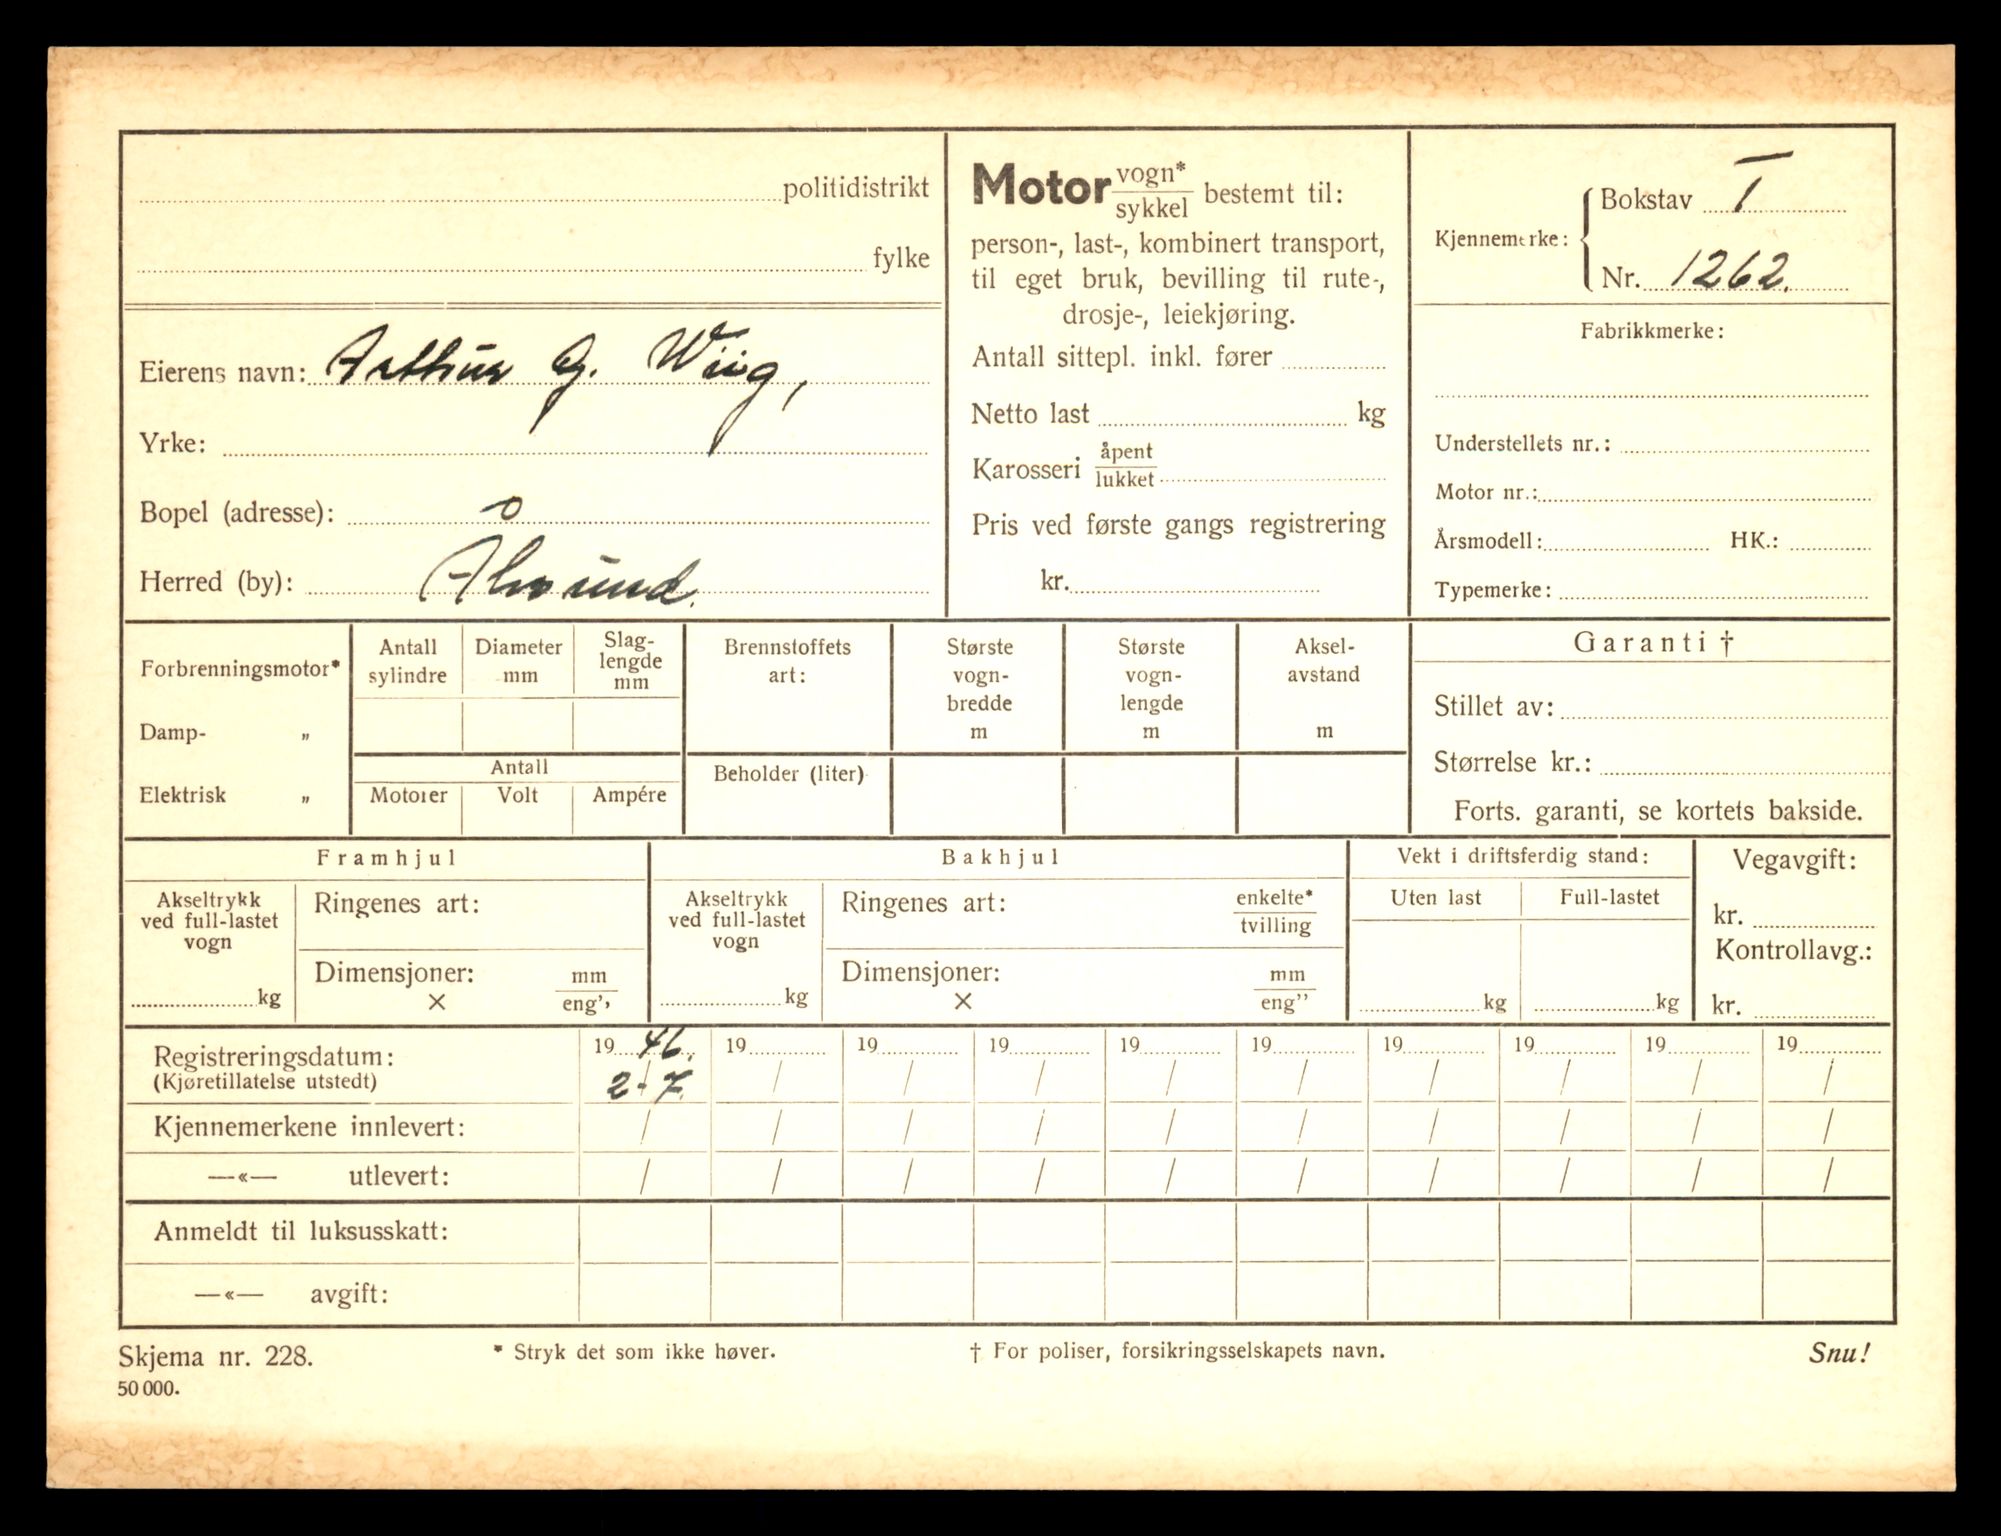 politidistrikt
fylke
Eierens navn: Arthur G. Wiig,
Yrke:
Bopel (adresse):
Herred (by): Ålvund.
Motor vogn* / sykkel bestemt til:
person-, last-, kombinert transport,
til eget bruk, bevilling til rute-,
drosje-, leiekjøring.
Antall sittepl. inkl. fører
Netto last kg
Karosseri åpent / lukket
Pris ved første gangs registrering
kr.
Kjennemerke: Bokstav T
Nr. 1262.
Fabrikkmerke:
Understellets nr.:
Motor nr.:
Årsmodell: HK.:
Typemerke:
Forbrenningsmotor*
Damp- „
Elektrisk „
Antall sylindre
Diameter mm
Slag-
lengde
mm
Antall
Motorer Volt Ampére
Brennstoffets
art:
Beholder (liter)
Største
vogn-
bredde
m
Største
vogn-
lengde
m
Aksel-
avstand
m
Garanti †
Stillet av:
Størrelse kr.:
Forts. garanti, se kortets bakside.
Framhjul
Akseltrykk
ved full-lastet
vogn
kg
Ringenes art:
Dimensjoner: mm
× eng''
Bakhjul
Akseltrykk
ved full-lastet
vogn
kg
Ringenes art: enkelte* / tvilling
Dimensjoner: mm
× eng''
Vekt i driftsferdig stand:
Uten last Full-lastet
kg kg
Vegavgift:
kr.
Kontrollavg.:
kr.
Registreringsdatum: 1946. 19 19 19 19 19 19 19 19 19
(Kjøretillatelse utstedt) 2-7. / / / / / / / / /
Kjennemerkene innlevert: / / / / / / / / / /
—«— utlevert: / / / / / / / / / /
Anmeldt til luksusskatt:
—«— avgift:
Skjema nr. 228. * Stryk det som ikke høver. † For poliser, forsikringsselskapets navn. Snu!
50 000.